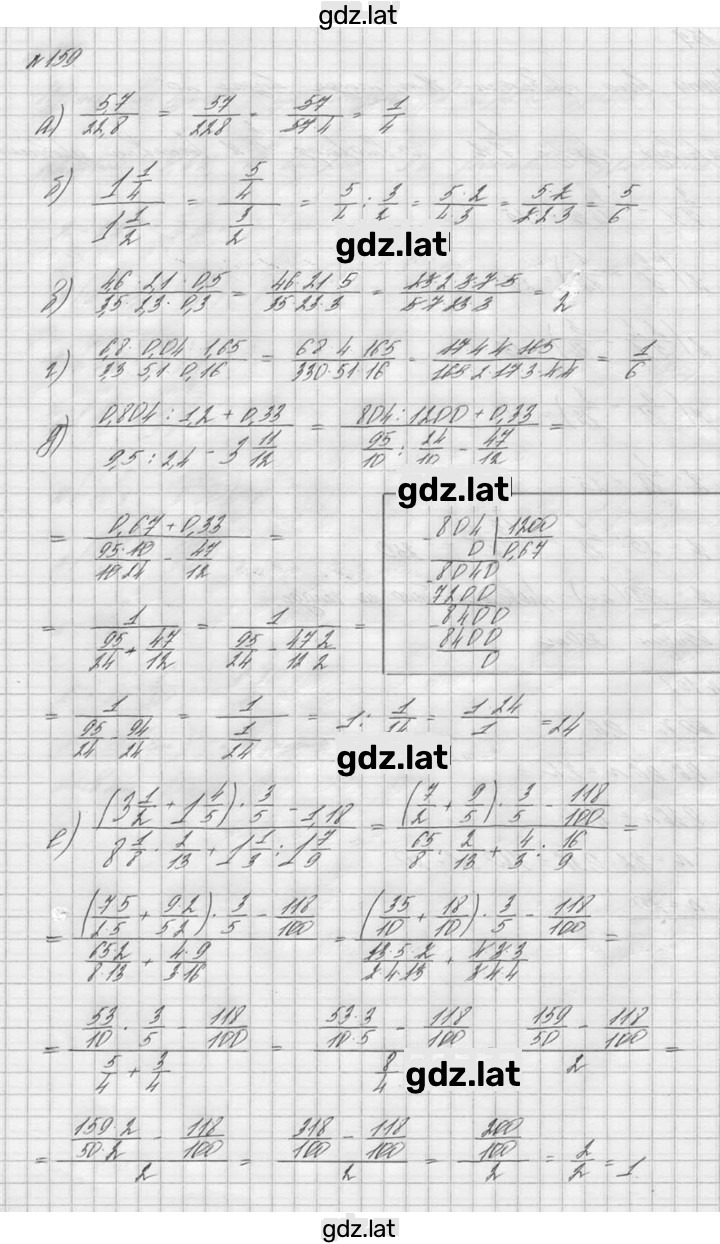 gdz.lat
№159
а) 5,7/22,8 = 57/228 = 57/(57·4) = 1/4
б) (1 1/4)/(1 1/2) = (5/4)/(3/2) = 5/4 : 3/2 = (5·2)/(4·3) = (5·2)/(2·2·3) = 5/6
gdz.lat
в) (4,6·2,1·0,5)/(3,5·2,3·0,3) = (46·21·5)/(35·23·3) = (23·2·3·7·5)/(5·7·23·3) = 2
г) (6,8·0,04·1,65)/(3,3·5,1·0,16) = (68·4·165)/(330·51·16) = (17·4·4·165)/(165·2·17·3·4·4) = 1/6
д) (0,804 : 1,2 + 0,33)/(9,5 : 2,4 - 3 11/12) = (804 : 1200 + 0,33)/(95/10 : 24/10 - 47/12) =
gdz.lat
= (0,67 + 0,33)/((95·10)/(10·24) - 47/12) =
804 | 1200
0 | 0,67
8040
7200
8400
8400
0
= 1/(95/24 + 47/12) = 1/(95/24 - (47·2)/(12·2)) =
= 1/(95/24 - 94/24) = 1/(1/24) = 1 : 1/24 = (1·24)/1 = 24
gdz.lat
е) ((3 1/2 + 1 4/5) · 3/5 - 1,18)/(8 1/8 · 2/13 + 1 1/3 : 1 7/9) = ((7/2 + 9/5) · 3/5 - 118/100)/(65/8 · 2/13 + 4/3 : 16/9) =
= (((7·5)/(2·5) + (9·2)/(5·2)) · 3/5 - 118/100)/((65·2)/(8·13) + (4·9)/(3·16)) = ((35/10 + 18/10) · 3/5 - 118/100)/((13·5·2)/(2·4·13) + (4·3·3)/(3·4·4)) =
= (53/10 · 3/5 - 118/100)/(5/4 + 3/4) = ((53·3)/(10·5) - 118/100)/(8/4) = (159/50 - 118/100)/2 =
gdz.lat
= ((159·2)/(50·2) - 118/100)/2 = (318/100 - 118/100)/2 = (200/100)/2 = 2/2 = 1
gdz.lat